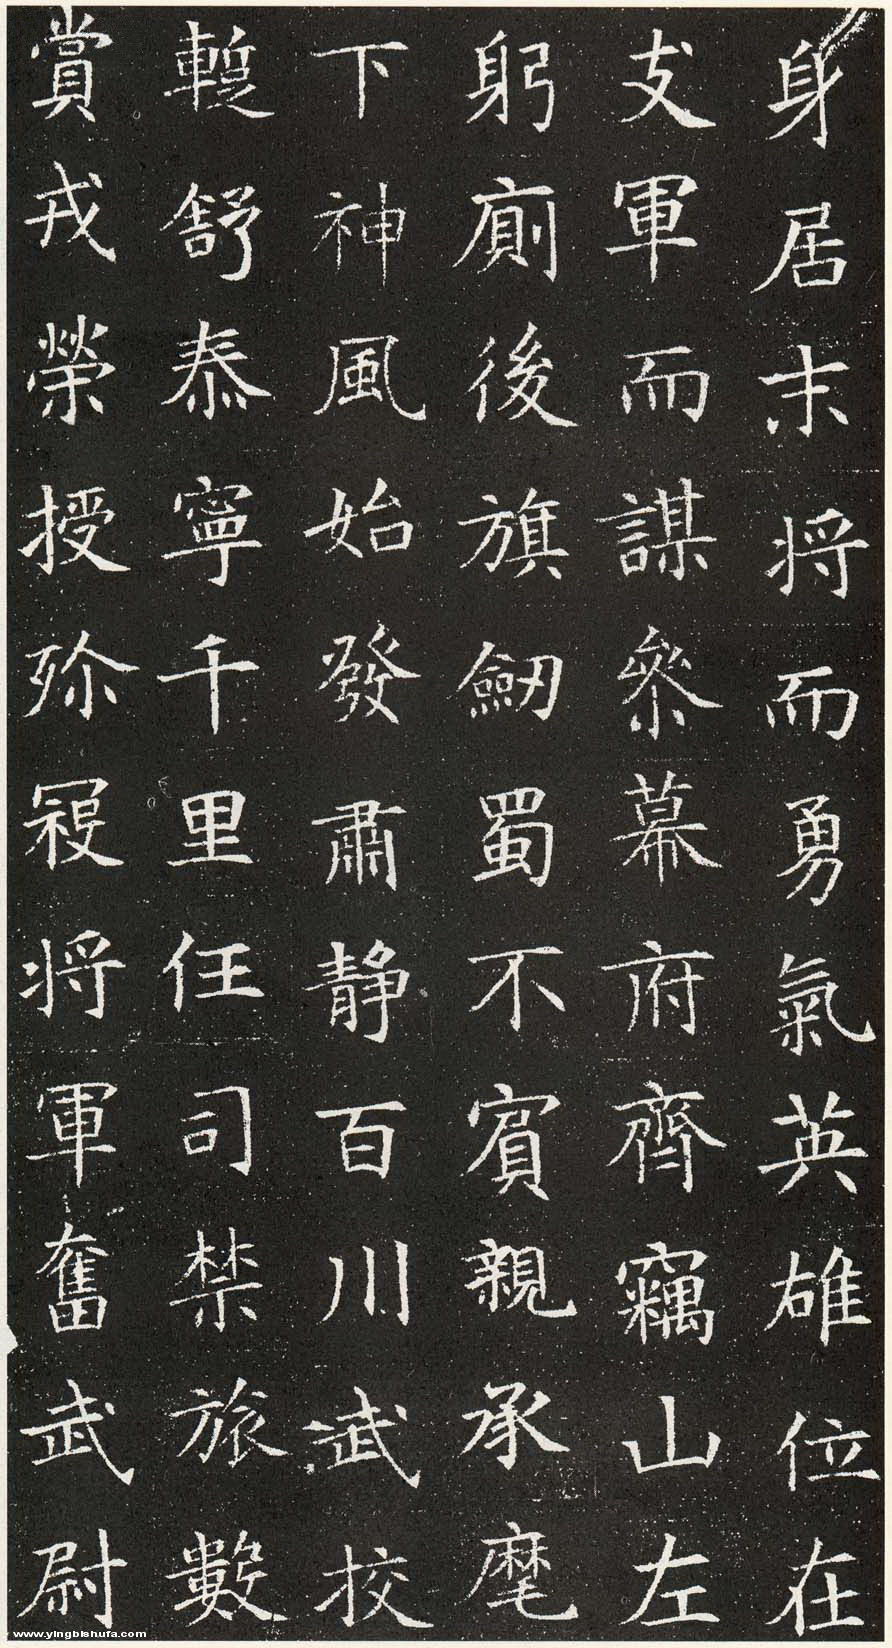 身居末将而勇氣英雄位在
支軍而謀叅幕府齊竊山左
躬廁後旗劒蜀不賓親承麾
下神風始發肅静百川武校
暫舒泰寧千里任司禁旅數
賞戎榮授殄冦将軍奮武尉
www.yingbishufa.com